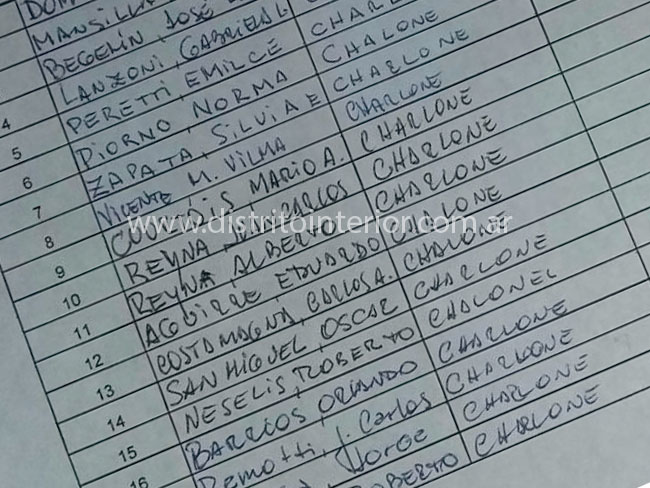 MANSILLA
BEGELIN, JOSÉ
LANZONI, GABRIEL L CHARLO
4 PERETTI, EMILCE CHALONE
5 DIORNO NORMA CHARLONE
6 ZAPATA, SILVIA E CHARLONE
7 VICENTE M. VILMA CHARLONE
8 MARIO A. CHARLONE
9 REYNA CARLOS CHARLONE
10 REYNA ALBERTO CHALONE
11 AGUIRRE EDUARDO CHALONE
12 COSTAMAGNA, CARLOS A. CHARLONE
13 SAN MIGUEL, OSCAR CHALONEL
14 NESELIS, ROBERTO CHARLONE
15 BARRIOS ORLANDO CHARLOONE
16 Demotti, J. Carlos CHARLONE
Jorge CHARLONE
ROBERTO
www.distritointerior.com.ar